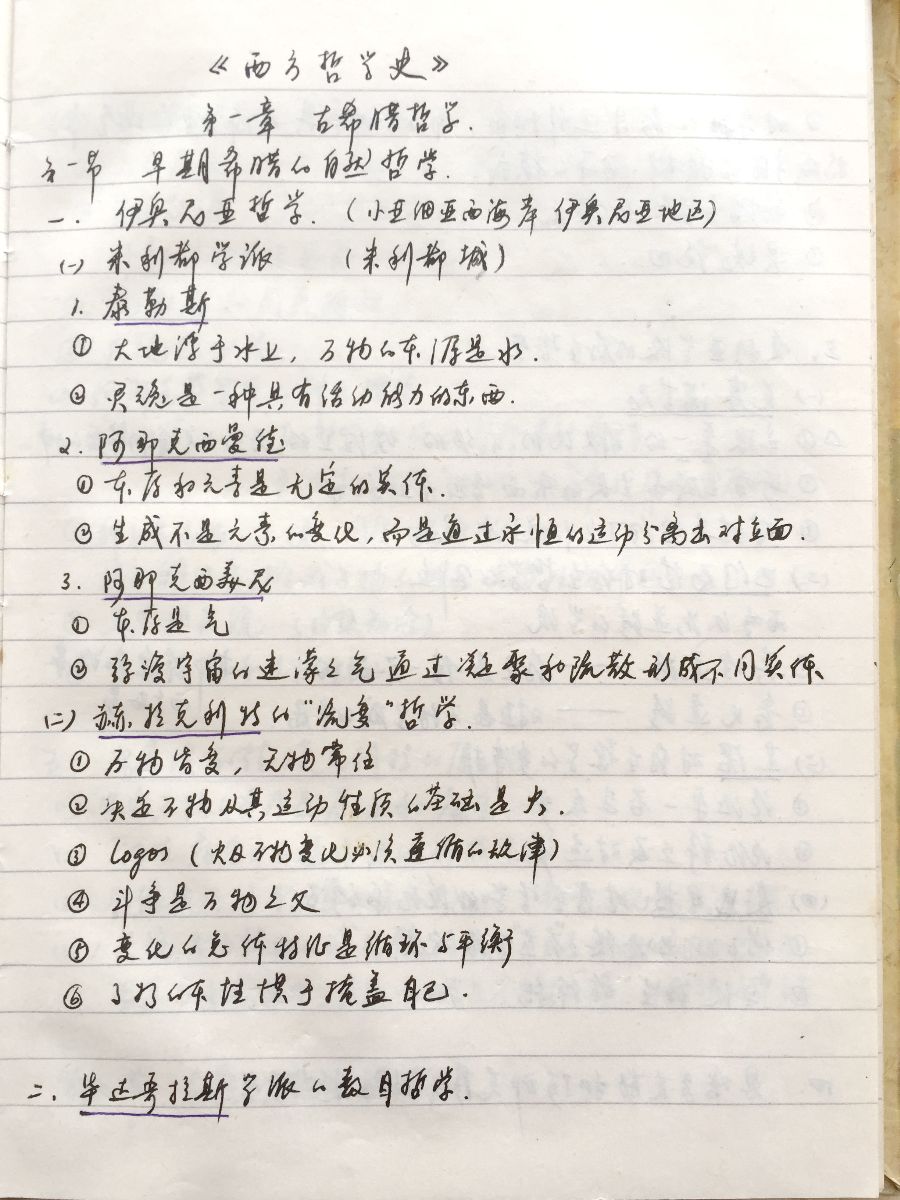 《西方哲学史》
第一章 古希腊哲学.
第一节 早期希腊的自然哲学.
一. 伊奥尼亚哲学. (小亚细亚西海岸 伊奥尼亚地区)
(一) 米利都学派 (米利都城)
1. 泰勒斯
① 大地浮于水上, 万物的本源是水.
② 灵魂是一种具有活动能力的东西.
2. 阿那克西曼德
① 本原和元素是无定的实体.
② 生成不是元素的变化, 而是通过永恒的运动分离出对立面.
3. 阿那克西美尼
① 本原是气
② 弥漫宇宙的迷濛之气通过凝聚和疏散形成不同实体.
(二) 赫拉克利特的"流变"哲学.
① 万物皆变, 无物常住
② 决定万物及其运动性质的基础是火.
③ logos (火及万物变化必须遵循的规律)
④ 斗争是万物之父
⑤ 变化的总体特征是循环与平衡
⑥ 事物的本性惯于掩盖自己.
二. 毕达哥拉斯学派的数目哲学.